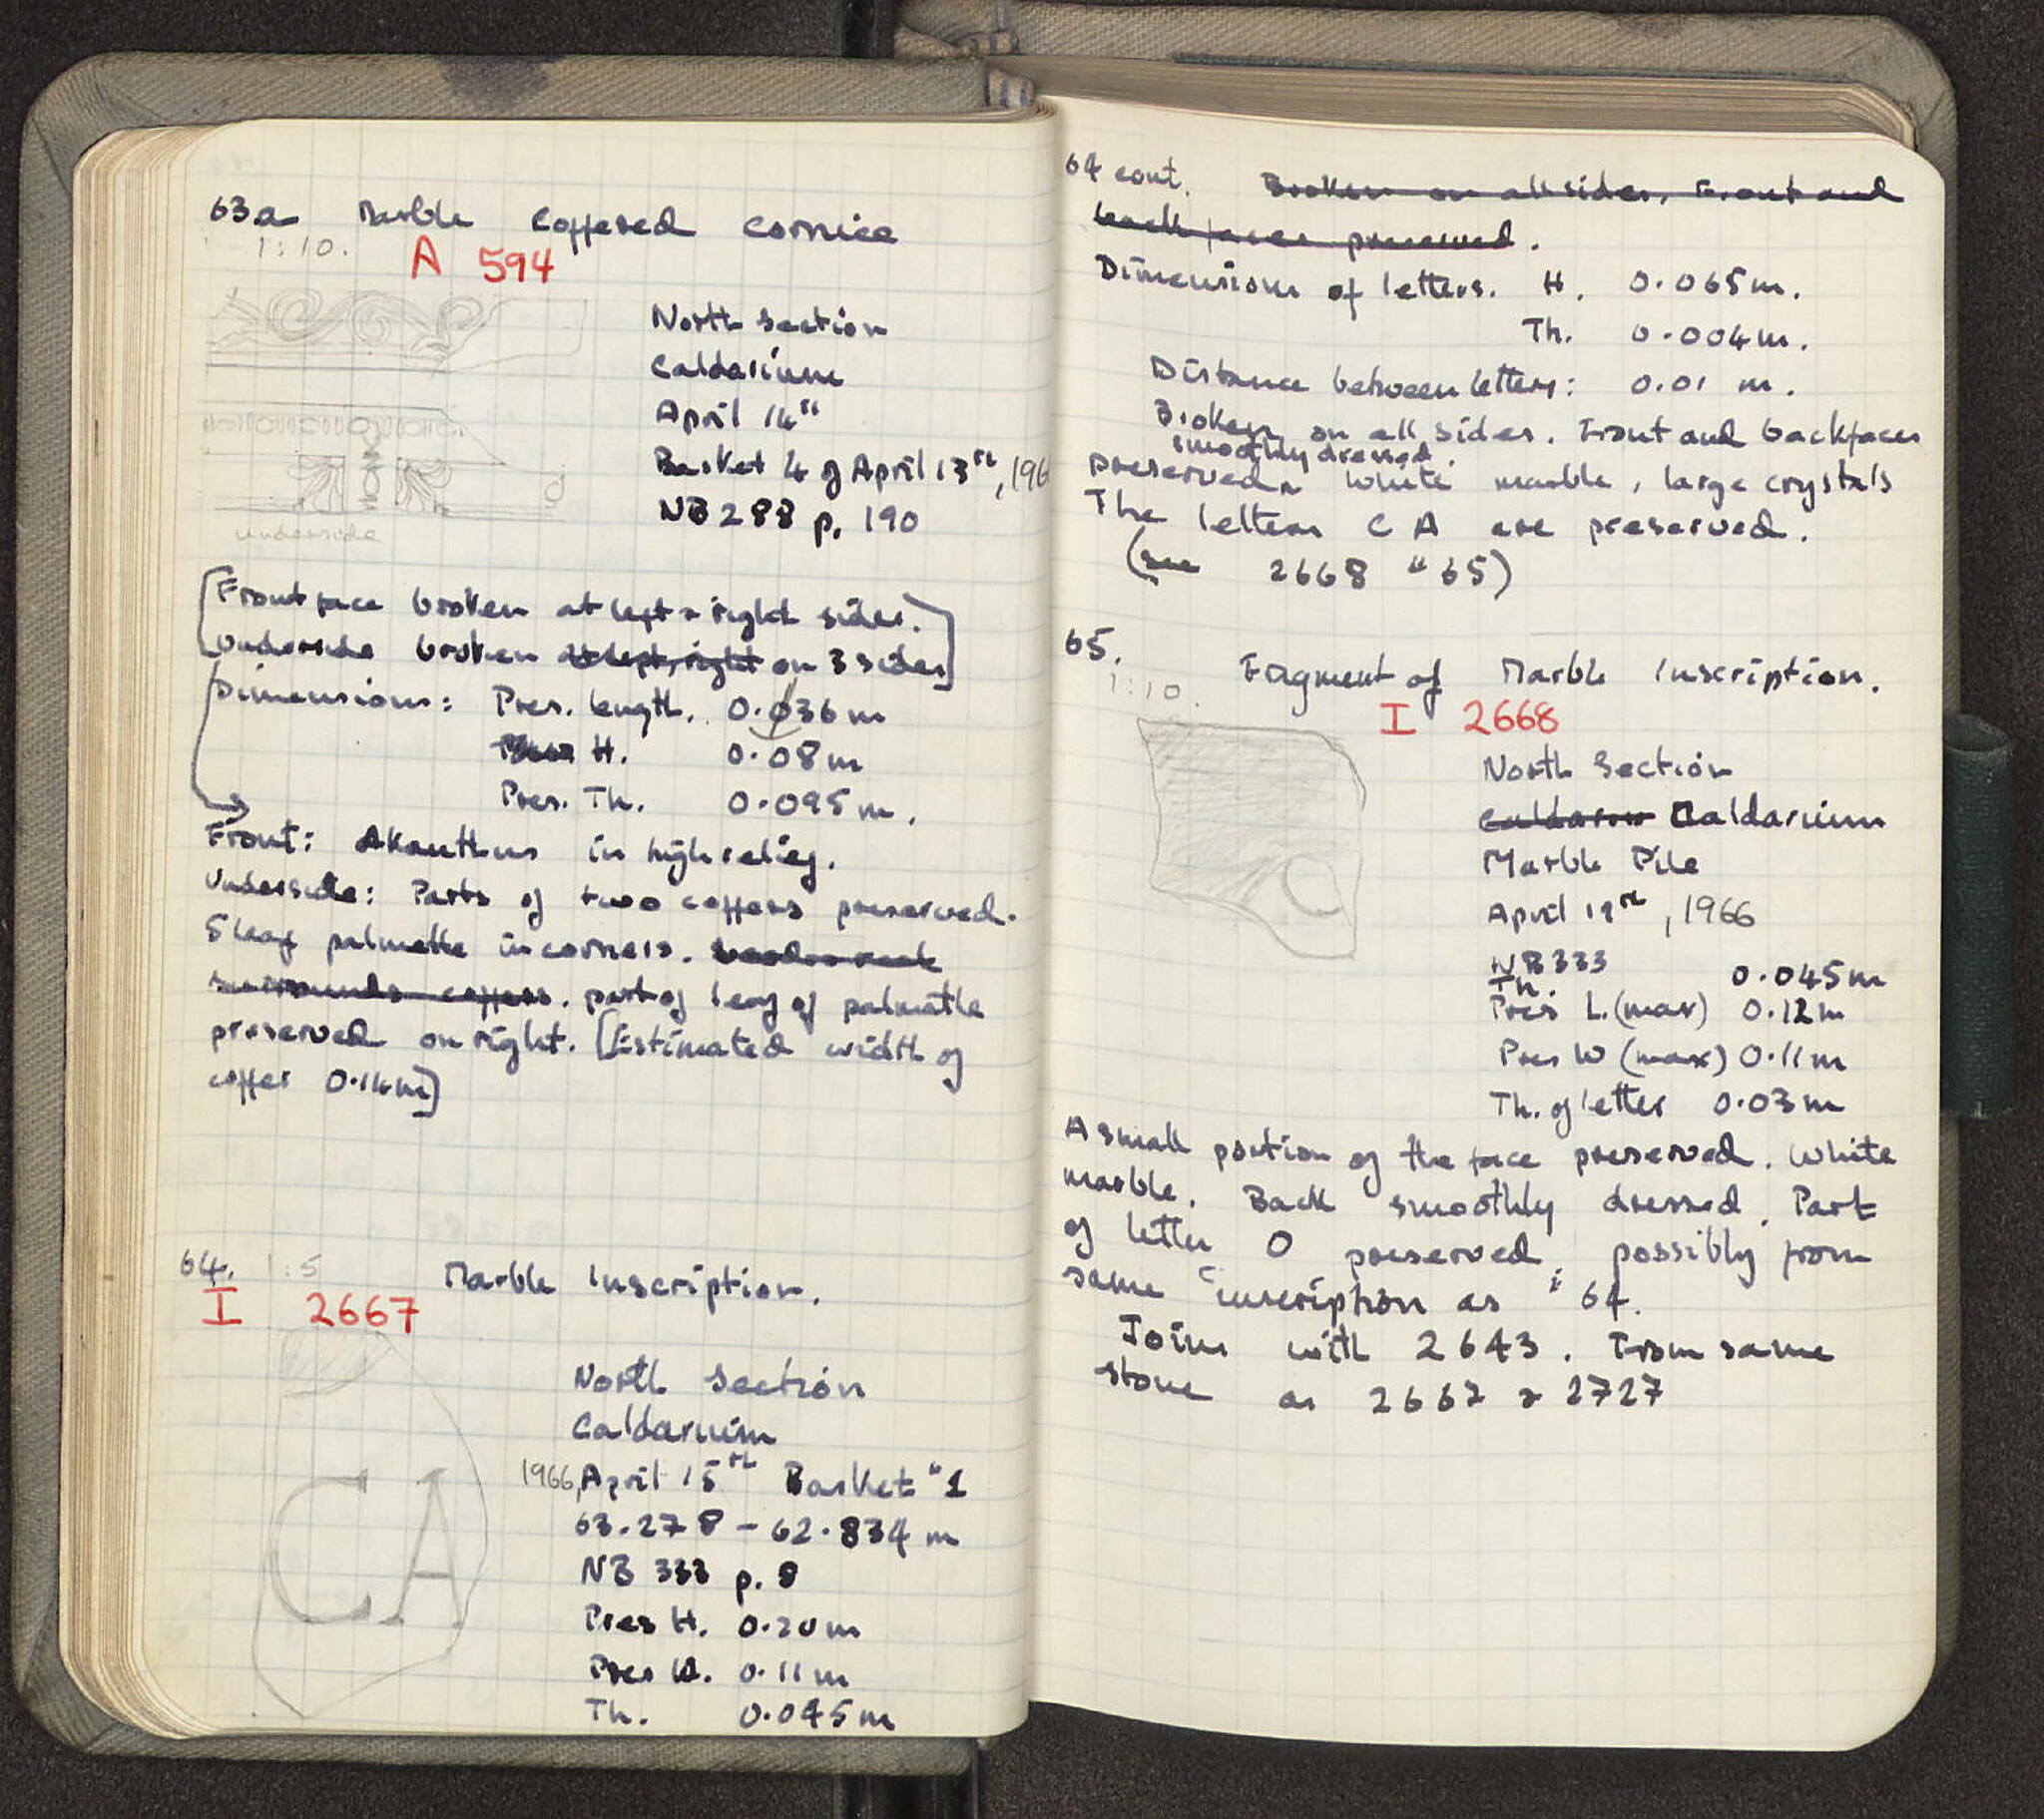 63a Marble coffered cornice
1:10.
A 594
North section
Caldarium
April 14th
Basket 4 of April 13th, 196
NB 288 p. 190
underside
[Front face broken at left & right sides.
Underside broken at left, right on 3 sides]
Dimensions: Pres. length. 0.036 m
H. 0.08 m
Pres. Th. 0.095 m.
Front: Akanthus in high relief.
Underside: Parts of two coffers preserved.
5 leaf palmette in corners.
surrounds coffers. part of leaf of palmette
preserved on right. [Estimated width of
coffer 0.14m]
64. 1:5 Marble Inscription.
I 2667
North Section
Caldarium
1966, April 15th Basket "1
63.278 - 62.834 m
NB 333 p. 8
Pres H. 0.20 m
Pres W. 0.11 m
Th. 0.045 m
CA
64 cont. Broken on all sides, Front and
back faces preserved.
Dimensions of letters. H. 0.065m.
Th. 0.004m.
Distance between letters: 0.01 m.
Broken on all sides. Front and backfaces
smoothly dressed.
preserved. White marble, large crystals
The letters C A are preserved.
(see 2668 "65)
65. Fragment of Marble Inscription.
1:10.
I 2668
North Section
Caldarium
Marble Pile
April 19th, 1966
NB 333
Th. 0.045m
Pres L. (max) 0.12m
Pres W (max) 0.11m
Th. of letter 0.03m
A small portion of the face preserved. White
marble. Back smoothly dressed. Part
of letter O preserved; possibly from
same inscription as # 64.
Joins with 2643. From same
stone as 2667 & 2727